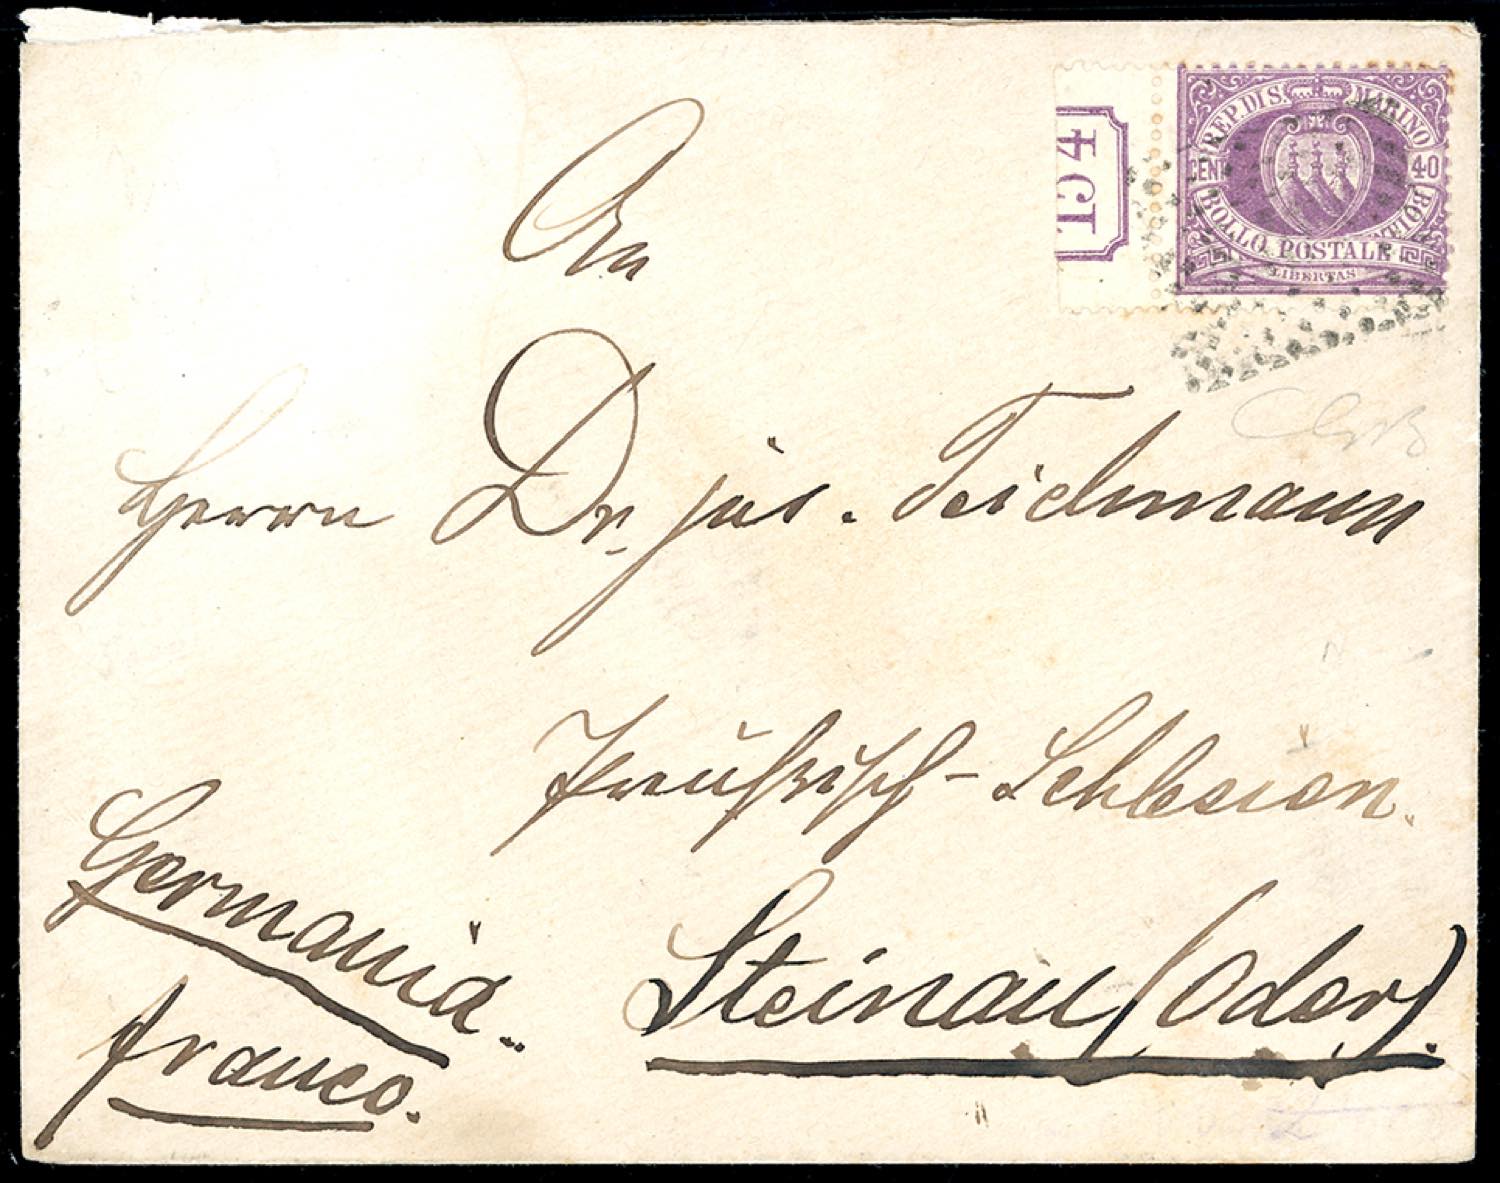 REP. DI S. MARINO
CENT 40
BOLLO POSTALE
LIBERTAS
An
Herrn Dr. jur. Teichmann
Preußisch-Schlesien.
Steinau (Oder).
Germania.
franco.